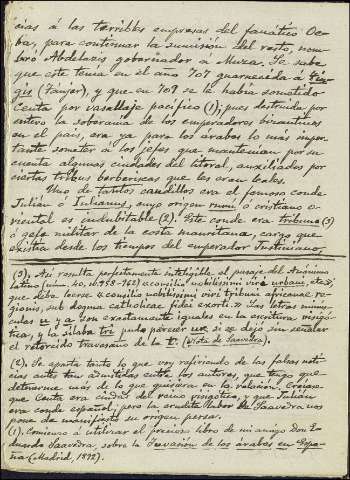 cias á las terribles empresas del fanático Oc-
ba, para continuar la sumisión del resto, nom-
bró Abdelazis gobernador á Muza. Se sabe
que este tenía en el año 707 guarnecida á Tin-
gis (Tanjer), y que en 709 se le había sometido
Ceuta por vasallaje pacífico (1); pues destruida por
entero la soberanía de los emperadores bizantinos
en el país, era ya para los árabes lo más impor-
tante someter á los jefes que mantenían por su
cuenta algunas ciudades del litoral, auxiliados por
ciertas tribus berberiscas que les eran leales.
Uno de tantos caudillos era el famoso conde
Julián ó Iulianus, cuyo origen rumí, ó cristiano o
riental es indubitable (2). Este conde era tribuno (3)
ó gefe militar de la costa mauritana, cargo que
existía desde los tiempos del emperador Justiniano,
(3). Así resulta perfectamente inteligible el pasaje del Anónimo
latino (núm. 40, v. 958-962) a consilio nobilissimi viri urbani, etc.,
que debe leerse à consilio nobilissimi viri tribuni africanae re-
gionis, sub dogma catholicae fidei exorti. Las letras minús-
culas son exactamente iguales en la escritura visigó-
tica, y la sílaba tri pudo parecer ur si se dejó sin señalar
el retorcido travesaño de la t. (Nota de Saavedra).
(2). Se aparta tanto lo que voy refiriendo de las falsas noti-
cias antes tan admitidas entre los autores, que tengo que
detenerme más de lo que quisiera en la relación. Creíase
que Ceuta era ciudad del reino visigótico, y que Julián
era conde español, pero la erudita labor de Saavedra nos
pone de manifiesto su origen persa.
(1). Comienzo á utilizar el precioso libro de mi amigo Don E-
duardo Saavedra, sobre la Invasión de los árabes en Espa-
ña (Madrid, 1892).